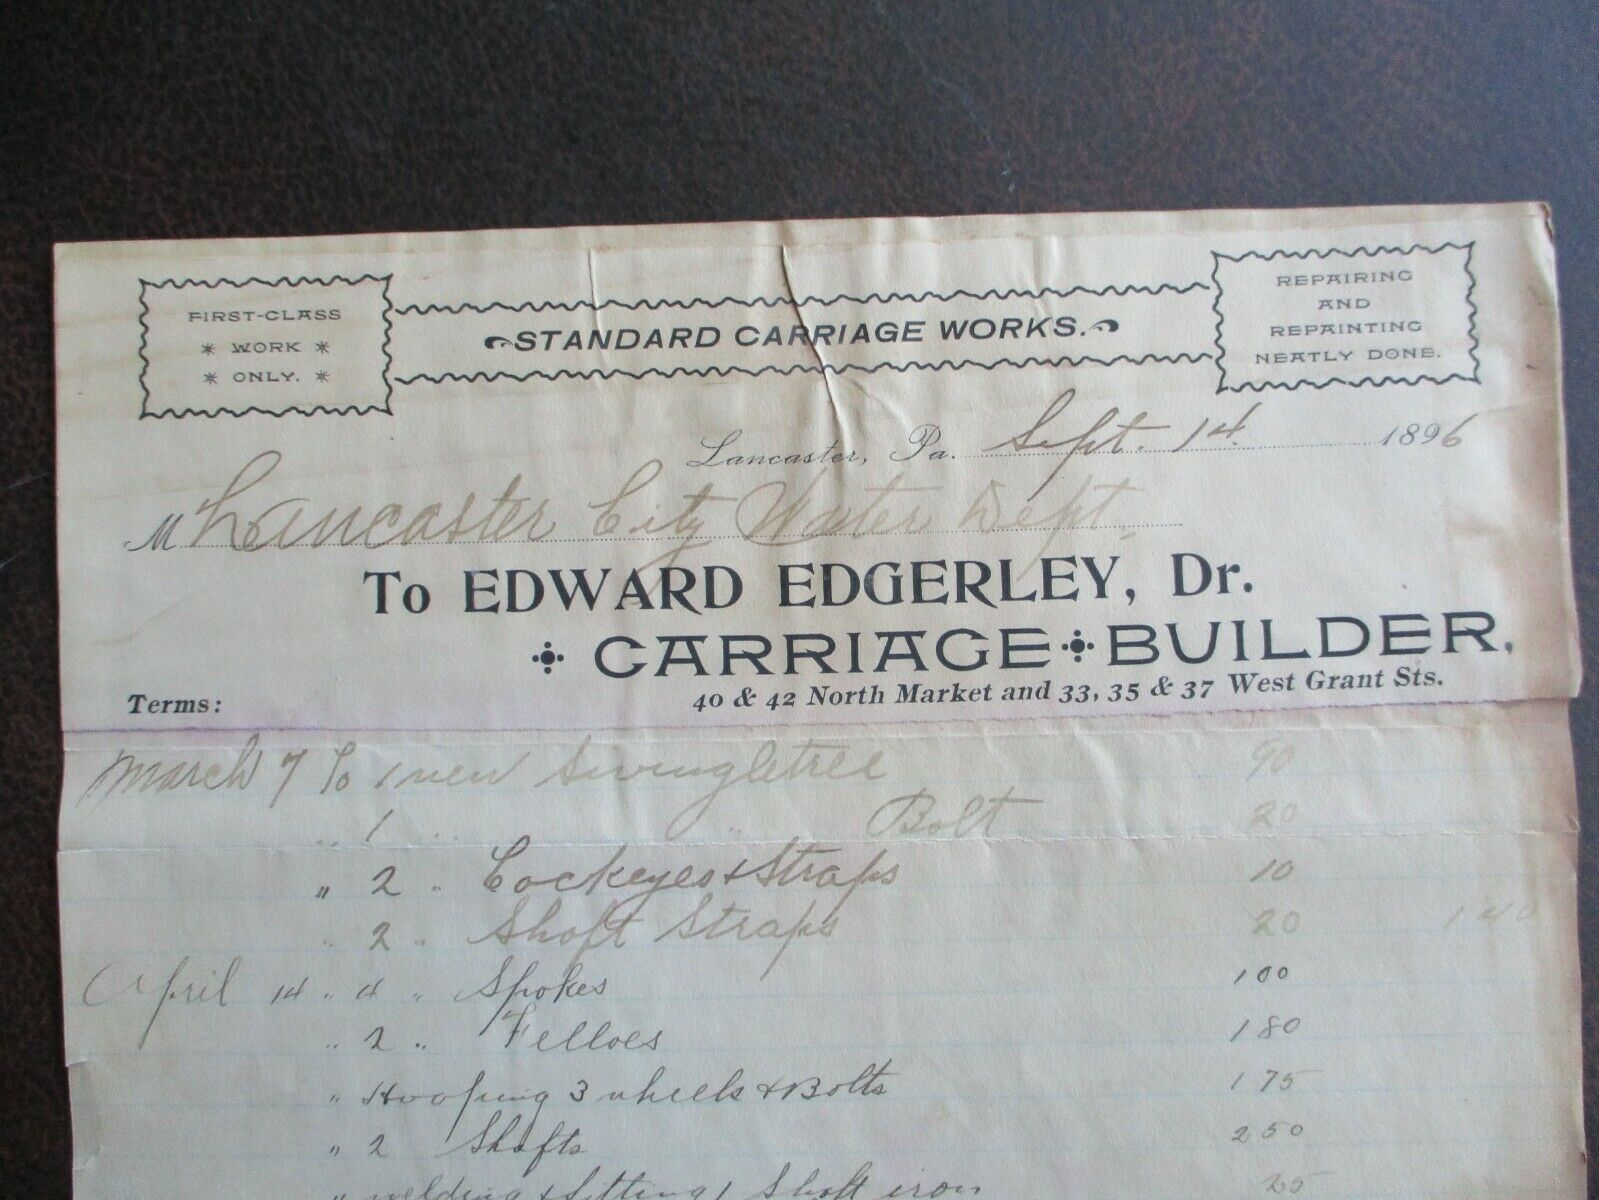 FIRST-CLASS
* WORK *
* ONLY. *
STANDARD CARRIAGE WORKS.
REPAIRING
AND
REPAINTING
NEATLY DONE.
Lancaster, Pa. Sept. 14 1896
M Lancaster City Water Dept.
To EDWARD EDGERLEY, Dr.
CARRIAGE BUILDER,
40 & 42 North Market and 33, 35 & 37 West Grant Sts.
Terms:
March 7 To 1 new Swingletree 90
" 1 " " Bolt 20
" 2 " Cockeyes & Straps 10
" 2 " Shaft Straps 20 140
April 14 " 4 " Spokes 100
" 2 " Felloes 180
" Hooping 3 wheels & Bolts 175
" 2 Shafts 250
" welding & fitting 1 Shaft iron 25